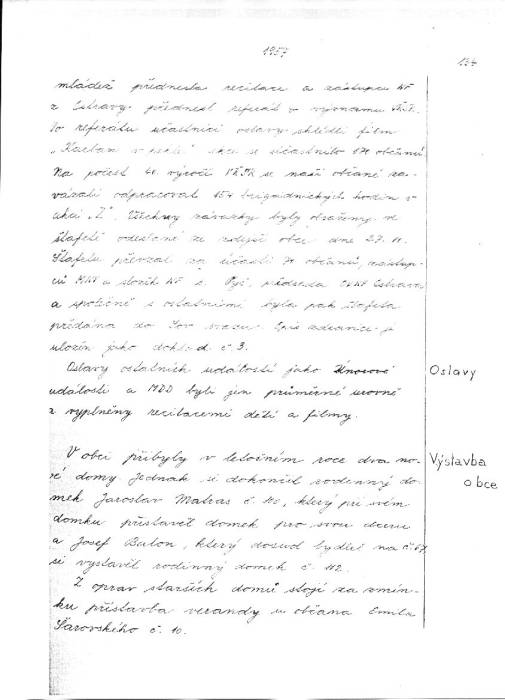 1957
134
mládež přednesla recitace a zástupce NF
z Ostravy přednesl referát o významu VŘSR.
Po referátu účastníci oslavy shlédli film
„Kaštan v akci se účastnilo 170 občanů
Na počest 40. výročí VŘSR se naši občané za-
vázali odpracovat 154 brigádnických hodin v
akci „Z". Všechny závazky byly obsaženy v
štafetě odeslané ze zdejší obce dne 27. 10.
Štafetu převzal za účasti občanů, zástup-
ců MNV a složek NF s. Vyč. předseda Ostrava
a společně s ostatními byla pak štafeta
předána do Sov. svazu. Opis zdravice je
uložen jako doklad č. 3.
Oslavy ostatních událostí jako Únorové
události a MDD byli jen průměrné úrovně
z vyplněny recitacemi dětí a filmy.
Oslavy
V obci přibyly v letošním roce dva no-
vé domy. Jednak si dokončil rodinný do-
mek Jaroslav Matras č. 110, který při svém
domku přistavěl domek pro svou dceru
a Josef Bulon, který dosud bydlel na č. 67,
si vystavěl rodinný domek č. 112.
Výstavba
obce
Z oprav starších domů stojí za zmín-
ku přístavba verandy u občana Emila
Šarovského č. 10.